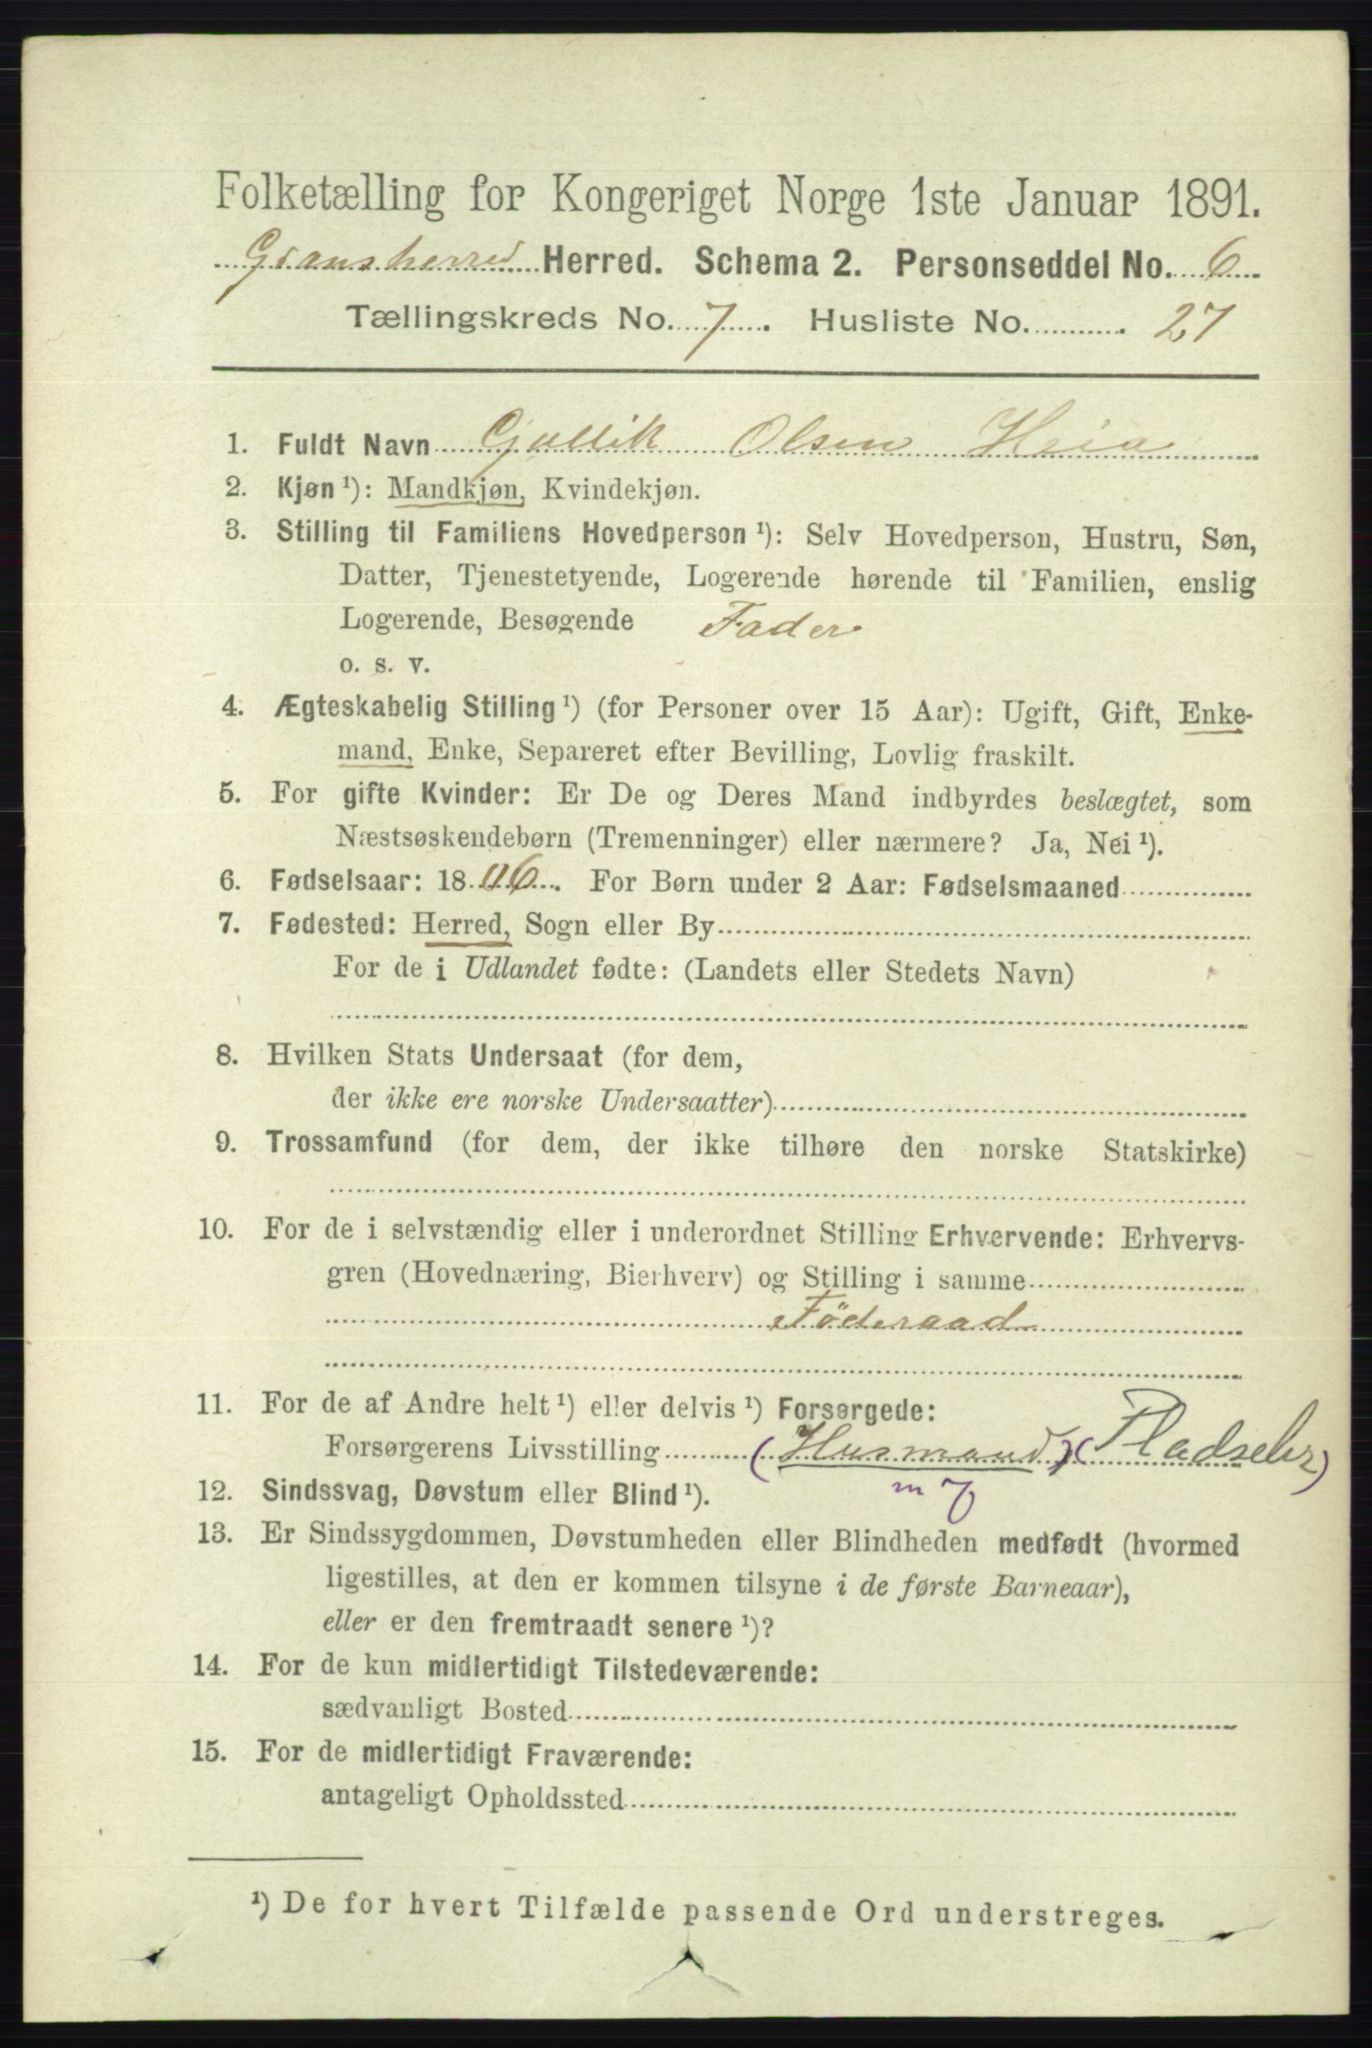 Folketælling for Kongeriget Norge 1ste Januar 1891.
Gransherred Herred. Schema 2. Personseddel No. 6
Tællingskreds No. 7. Husliste No. 27
1. Fuldt Navn Gjullik Olsen Heia
2. Kjøn ¹): Mandkjøn, Kvindekjøn.
3. Stilling til Familiens Hovedperson ¹): Selv Hovedperson, Hustru, Søn,
Datter, Tjenestetyende, Logerende hørende til Familien, enslig
Logerende, Besøgende Fader
o. s. v.
4. Ægteskabelig Stilling ¹) (for Personer over 15 Aar): Ugift, Gift, Enke-
mand, Enke, Separeret efter Bevilling, Lovlig fraskilt.
5. For gifte Kvinder: Er De og Deres Mand indbyrdes beslægtet, som
Næstsøskendebørn (Tremenninger) eller nærmere? Ja, Nei ¹).
6. Fødselsaar: 1806. For Børn under 2 Aar: Fødselsmaaned
7. Fødested: Herred, Sogn eller By
For de i Udlandet fødte: (Landets eller Stedets Navn)
8. Hvilken Stats Undersaat (for dem,
der ikke ere norske Undersaatter)
9. Trossamfund (for dem, der ikke tilhøre den norske Statskirke)
10. For de i selvstændig eller i underordnet Stilling Erhvervende: Erhvervs-
gren (Hovednæring, Bierhverv) og Stilling i samme
Föderaad
11. For de af Andre helt ¹) eller delvis ¹) Forsørgede:
Forsørgerens Livsstilling (Husmand)(Pladseier)
m J
12. Sindssvag, Døvstum eller Blind ¹).
13. Er Sindssygdommen, Døvstumheden eller Blindheden medfødt (hvormed
ligestilles, at den er kommen tilsyne i de første Barneaar),
eller er den fremtraadt senere ¹)?
14. For de kun midlertidigt Tilstedeværende:
sædvanligt Bosted
15. For de midlertidigt Fraværende:
antageligt Opholdssted
¹) De for hvert Tilfælde passende Ord understreges.